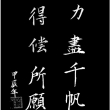 力盡千帆
得偿所願
甲辰年